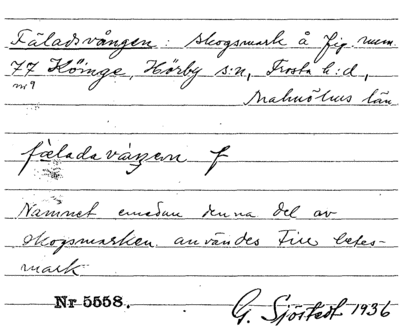 Fäladsvången: Skogsmark å fig. num.
77 Köinge, Hörby s:n, Frosta h:d,
nr 9
Malmöhus län
fäladavåŋen f
Namnet emedan denna del av
skogsmarken användes till betes-
mark
Nr 5558.
G. Sjöstedt 1936